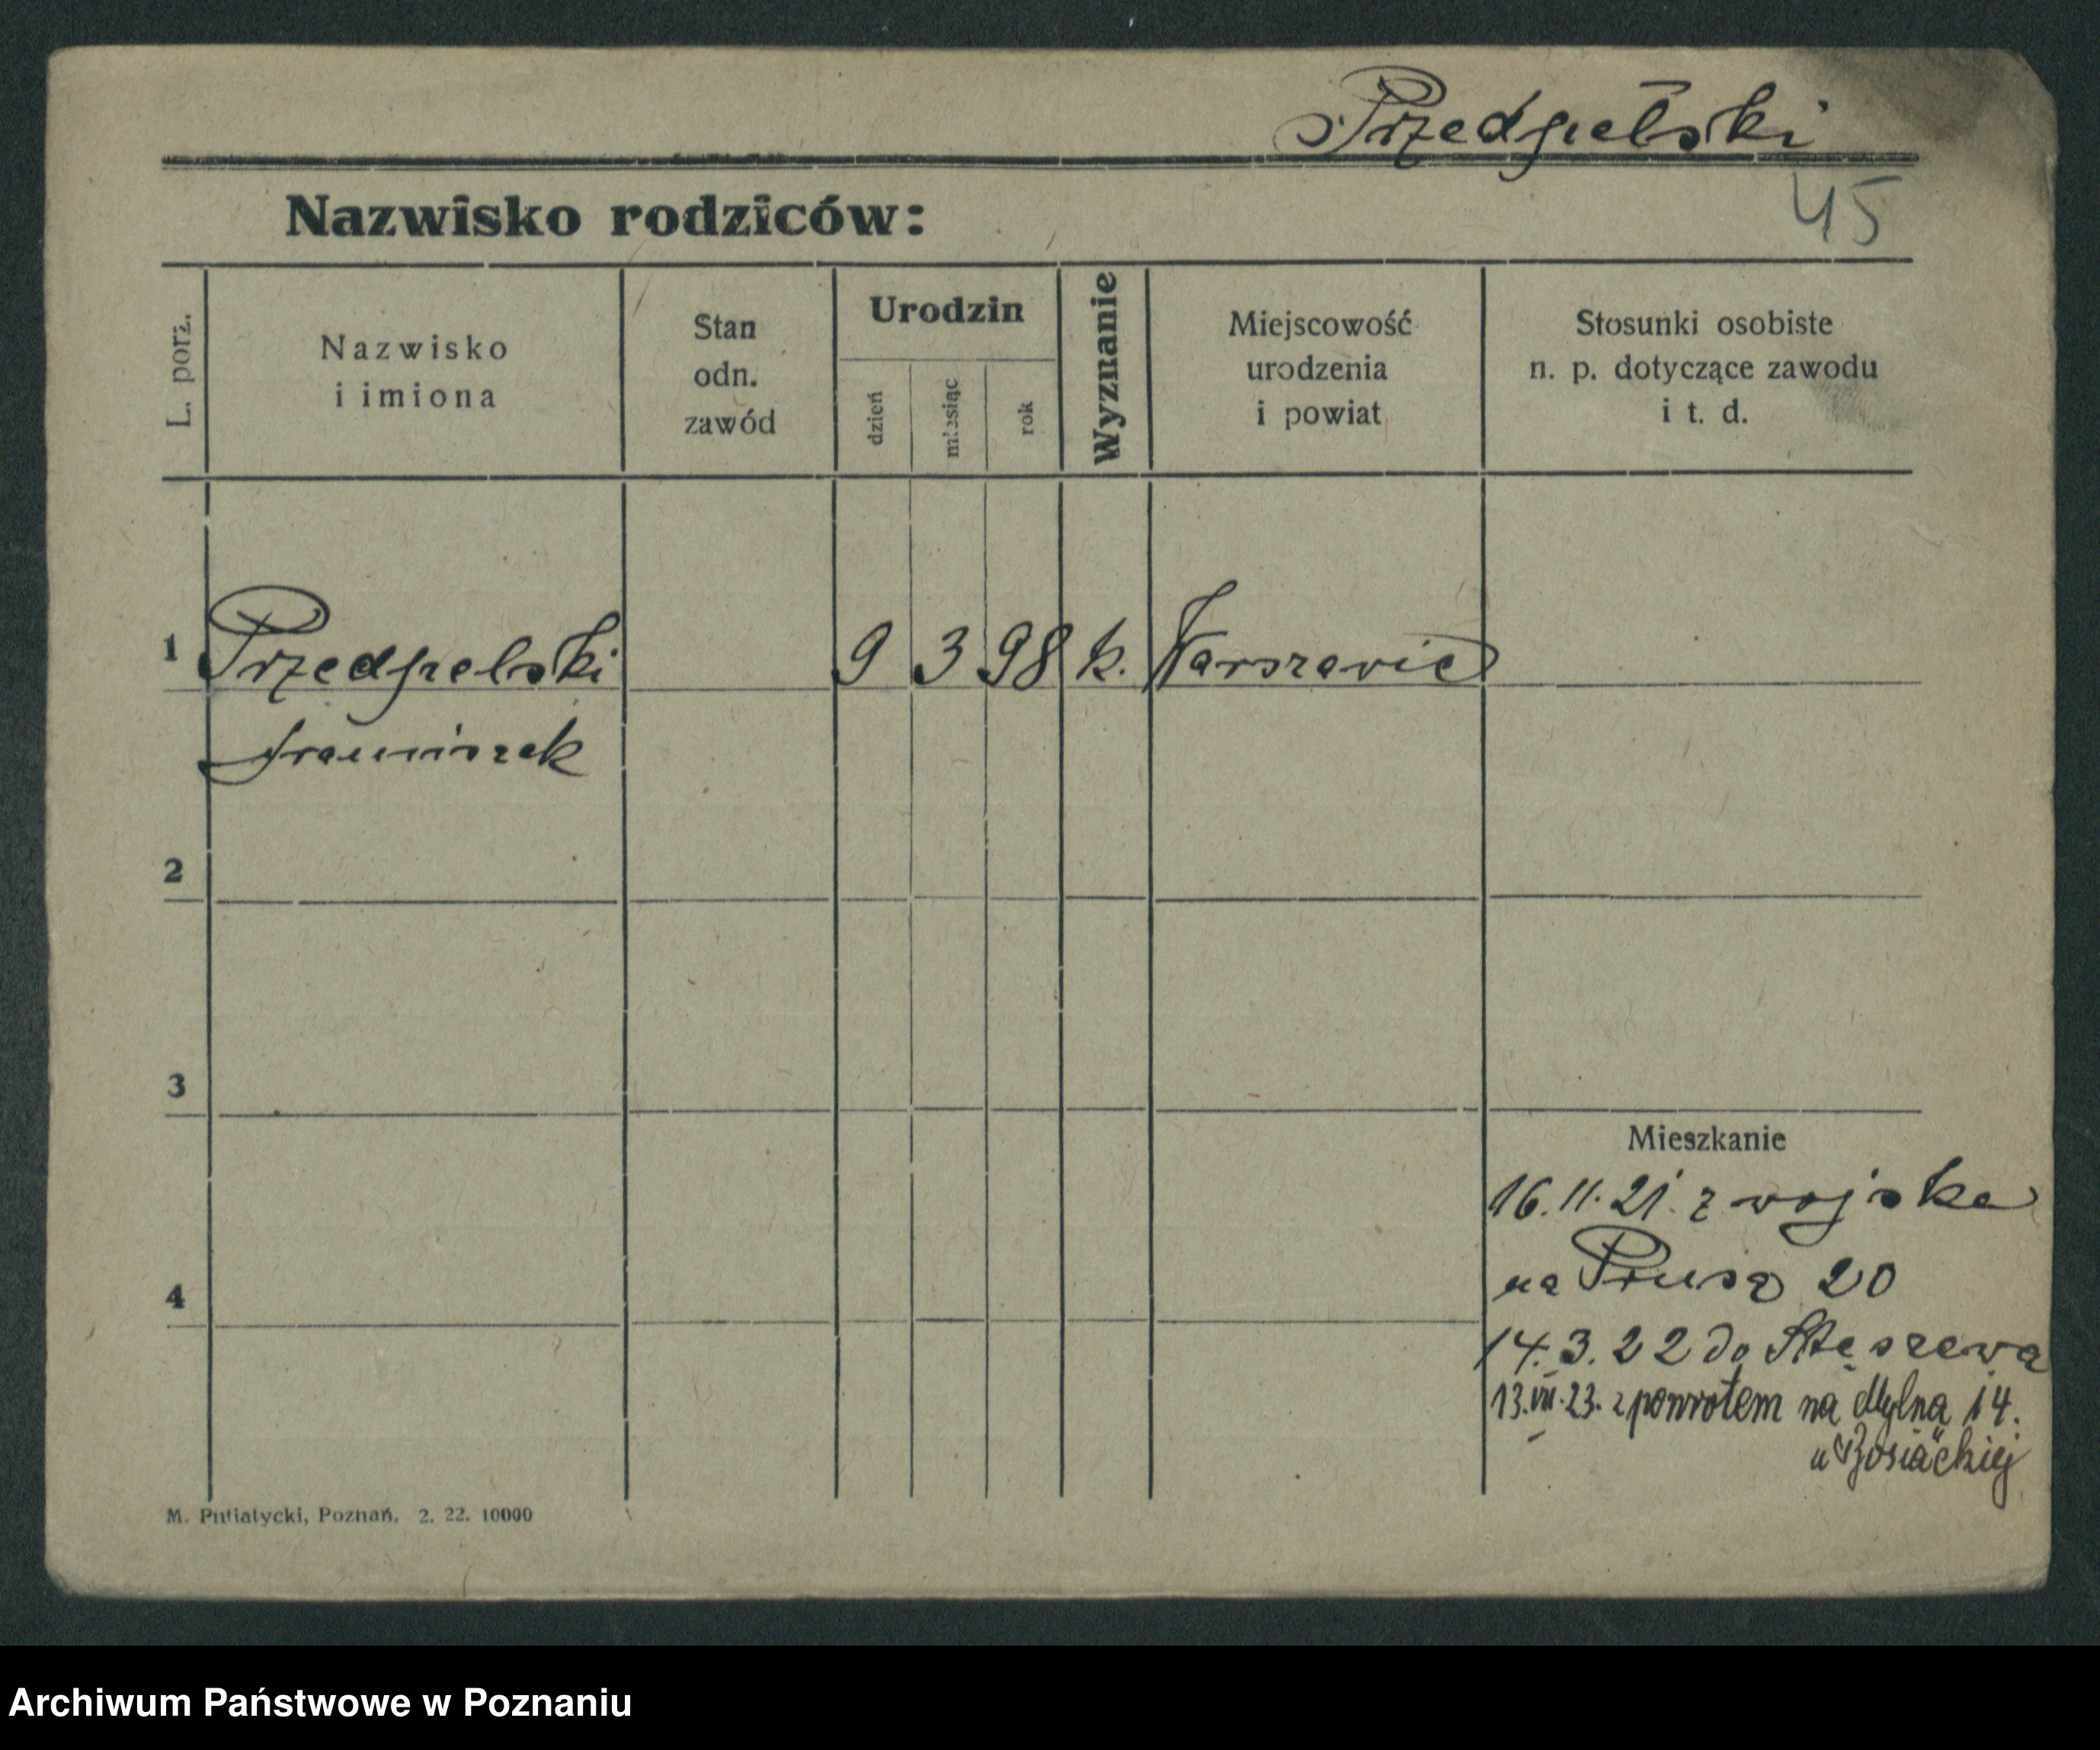 Przedpełski
45
Nazwisko rodziców:
L. porz.
Nazwisko
i imiona
Stan
odn.
zawód
Urodzin
dzień
miesiąc
rok
Wyznanie
Miejscowość
urodzenia
i powiat
Stosunki osobiste
n. p. dotyczące zawodu
i t. d.
1 Przedpelski 9 3 98 k.
Franciszek
2
3
Mieszkanie
16.11.21. z wojska
na Prusa 20
4
14.3.22 do Stęszewa
13.VII.23. z powrotem na Mylna 14.
u
M. Putiatycki, Poznań. 2. 22. 10000
Archiwum Państwowe w Poznaniu